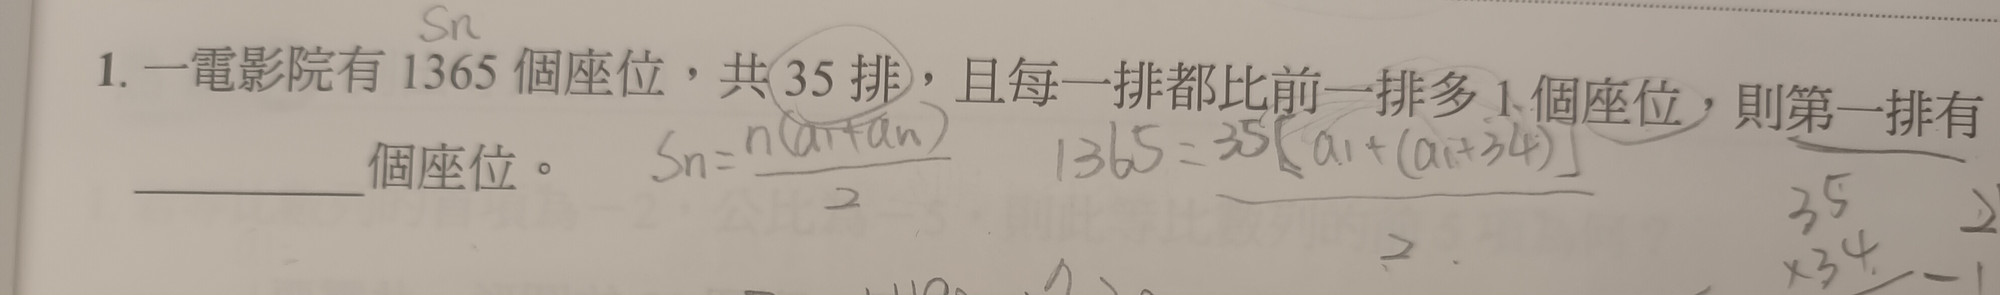 Sn
1. 一電影院有 1365 個座位，共 35 排，且每一排都比前一排多 1 個座位，則第一排有
________個座位。
Sn = n(a1+an) / 2
1365 = 35[a1+(a1+34)] / 2
35
×34